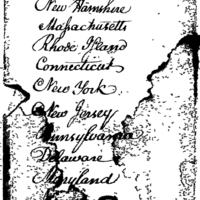 New Hamshire
Massachusetts
Rhode Island
Connecticut
New York
New Jersey
Pennsylvania
Delaware
Maryland